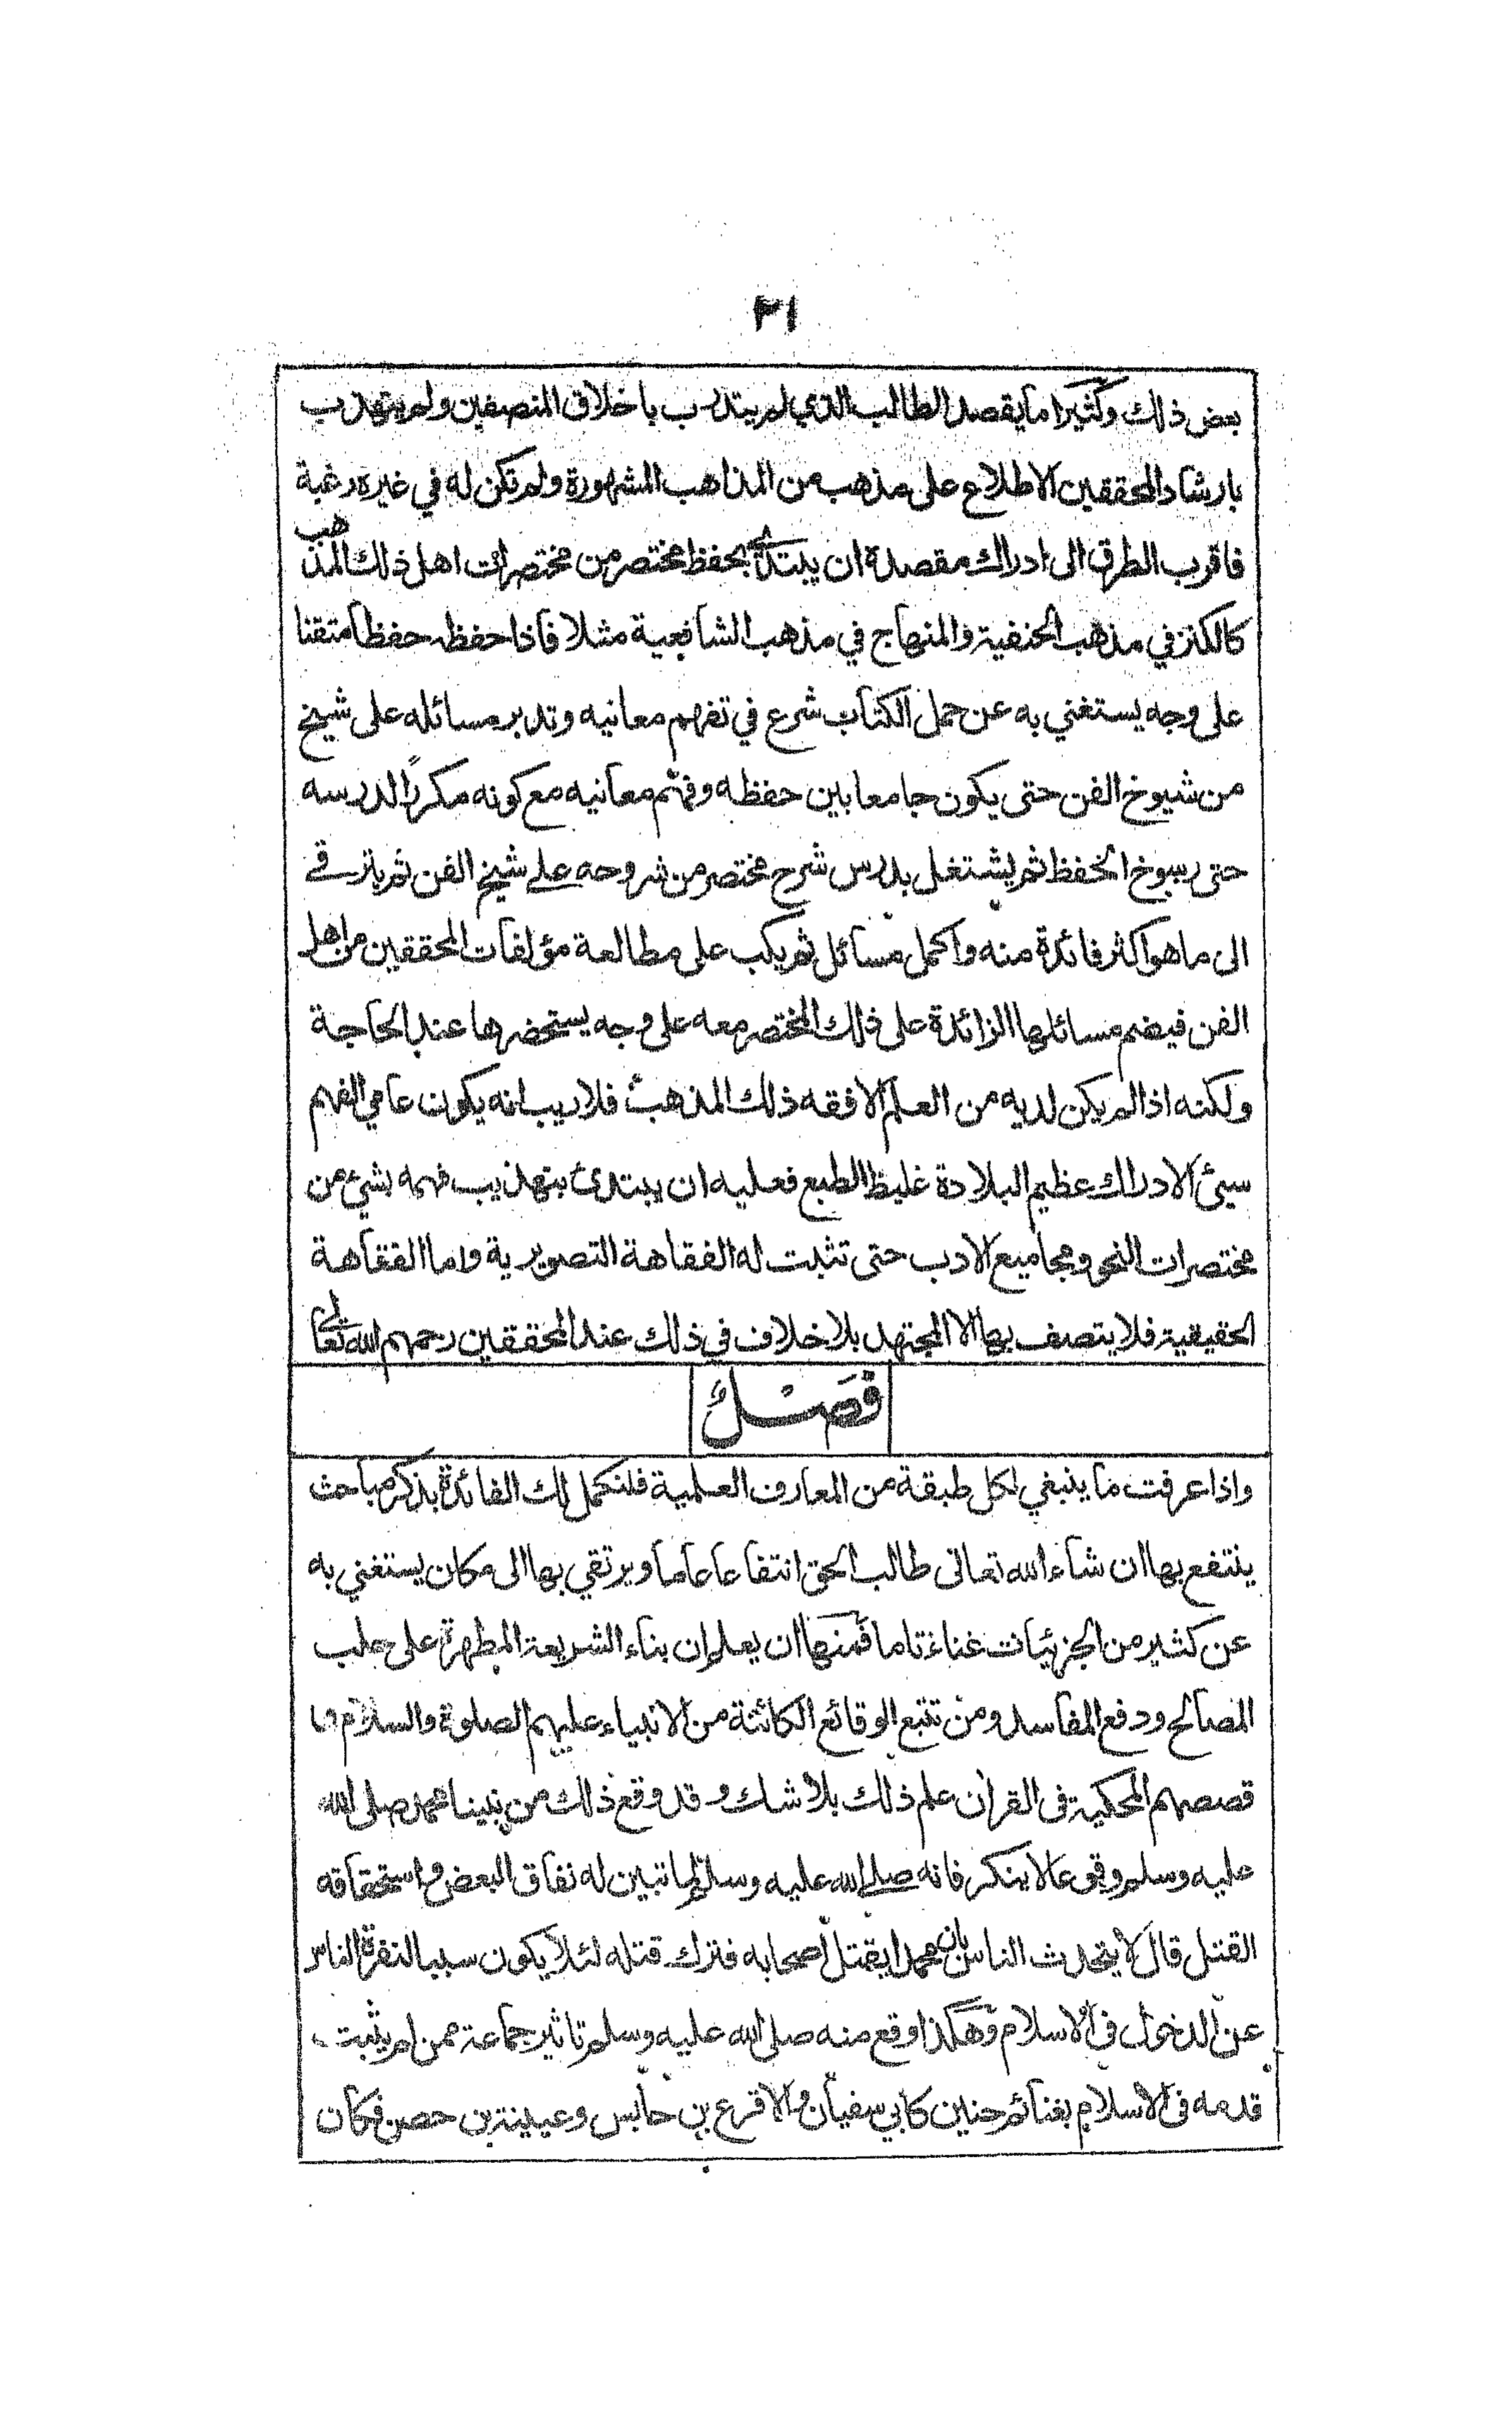 ٣١
بعض ذلك وكثيرا ما يقصد الطالب الذي لم يتدرب باخلاق المنصفين ولم يتهذب
بارشاد المحققين الاطلاع على مذهب من المذاهب المشهورة ولم تكن له في غيره رغبة
فاقرب الطرق الى ادراك مقصده ان يبتدئ بحفظ مختصر من مختصرات اهل ذلك المذهب
كالكنز في مذهب الحنفية والمنهاج في مذهب الشافعية مثلا فاذا حفظه حفظا متقنا
على وجه يستغني به عن حمل الكتاب شرع في تفهم معانيه وتدبر مسائله على شيخ
من شيوخ الفن حتى يكون جامعا بين حفظه وفهم معانيه مع كونه مكررًا لدرسه
حتى رسوخ الحفظ ثم يشتغل بدرس شرح مختصر من شروحه على شيخ الفن ثم يترقے
الى ما هو اكثر فائدة منه واكمل مسائل ثم يكب على مطالعة مؤلفات المحققين من اهل
الفن فيضم مسائلها الزائدة على ذلك المختصر معه على وجه يستحضرها عند الحاجة
ولكنه اذا لم يكن لديه من العلم الا فقه ذلك المذهب فلا ريب انه يكون عامي الفهم
سيئ الادراك عظيم البلادة غليظ الطبع فعليه ان يبتدئ بتهذيب فهمه بشيء من
مختصرات النحو ومجاميع الادب حتى تثبت له الفقاهة التصويرية واما الفقاهة
الحقيقية فلا يتصف بها الا المجتهد بلا خلاف في ذلك عند المحققين رحمهم الله تعالى
فَصْلٌ
واذا عرفت ما ينبغي لكل طبقة من المعارف العلمية فلنكمل لك الفائدة بذكر مباحث
ينتفع بها ان شاء الله تعالى طالب الحق انتفاعا عاما ويرتقي بها الى مكان يستغني به
عن كثير من الجزئيات غناء تاما فمنها ان يعلم ان بناء الشريعة المطهرة على جلب
المصالح ودفع المفاسد ومن تتبع الوقائع الكائنة من الانبياء عليهم الصلوة والسلام وما
قصصهم المحكية فى القران علم ذلك بلا شك وقد وقع ذلك من نبينا محمد صلى الله
عليه وسلم وقوعا لا ينكر فانه صلى الله عليه وسلم لما تبين له نفاق البعض واستحقاقه
القتل قال لا يتحدث الناس بان محمدا يقتل اصحابه فترك قتله لئلا يكون سببا لنفرة الناس
عن الدخول فى الاسلام وهكذا وقع منه صلى الله عليه وسلم تاثير جماعة ممن لم يثبت
قدمه فى الاسلام بغنائم حنين كابي سفيان والاقرع بن حابس وعيينة بن حصن فكان